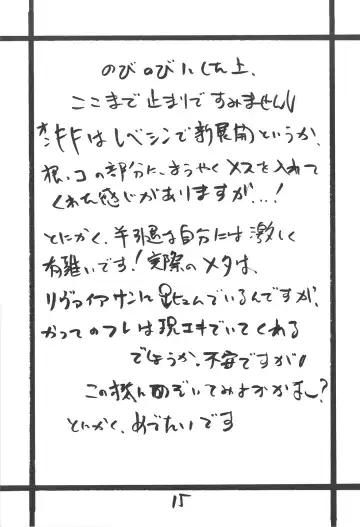 のびのびにした上、
ここまで止まりですみません
オンキドはレベシンで新展開というか、
根っコの部分に、ようやくメスを入れて
くれた感じがありますが…!
とにかく、半引退な自分には激しく
有難いです!実際のメタは、
リヴァイアサンに飛んでいるんですが、
かつてのフレは現エキでいてくれる
でしょうか。不安ですが
この機にのぞいてみようかなー?
とにかく、めでたいです
15